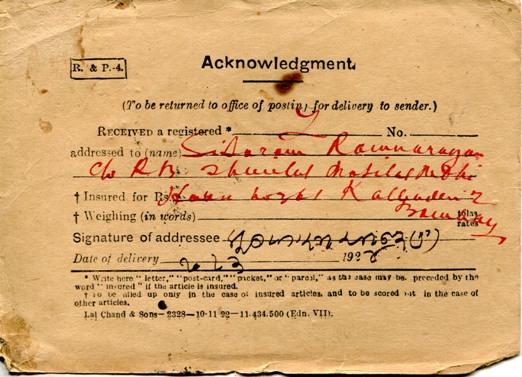 R. & P.-4.
Acknowledgment.
(To be returned to office of posting for delivery to sender.)
RECEIVED a registered * No.
addressed to (name) Sitaram Ramnarayan
C/o R. B.
† Insured for Rs. Kalbadevi
† Weighing (in words) Bombay tolas
rates
Signature of addressee
Date of delivery 192
* Write here "letter," "post-card," "packet," or "parcel," as the case may be, preceded by the
word "insured" if the article is insured.
† To be filled up only in the case of insured articles and to be scored out in the case of
other articles.
Lal Chand & Sons—2328—10-11-22—11,434,500 (Edn. VII).